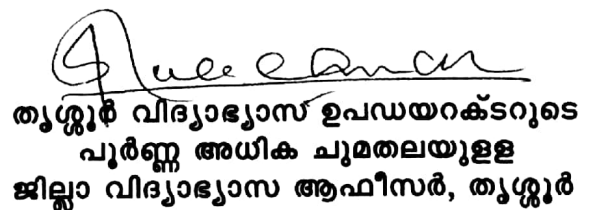 തൃശ്ശൂർ വിദ്യാഭ്യാസ് ഉപഡയറക്ടറുടെ
പൂർണ്ണ അധിക ചുമതലയുളള
ജില്ലാ വിദ്യാഭ്യാസ ആഫീസർ, തൃശ്ശൂർ